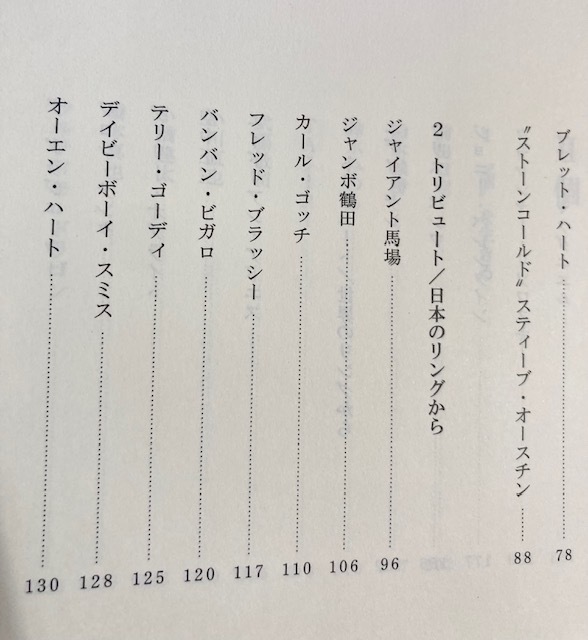 ブレット・ハート 78
〝ストーンコールド〟スティーブ・オースチン 88
2 トリビュート/日本のリングから
ジャイアント馬場 96
ジャンボ鶴田 106
カール・ゴッチ 110
フレッド・ブラッシー 117
バンバン・ビガロ 120
テリー・ゴーディ 125
デイビーボーイ・スミス 128
オーエン・ハート 130